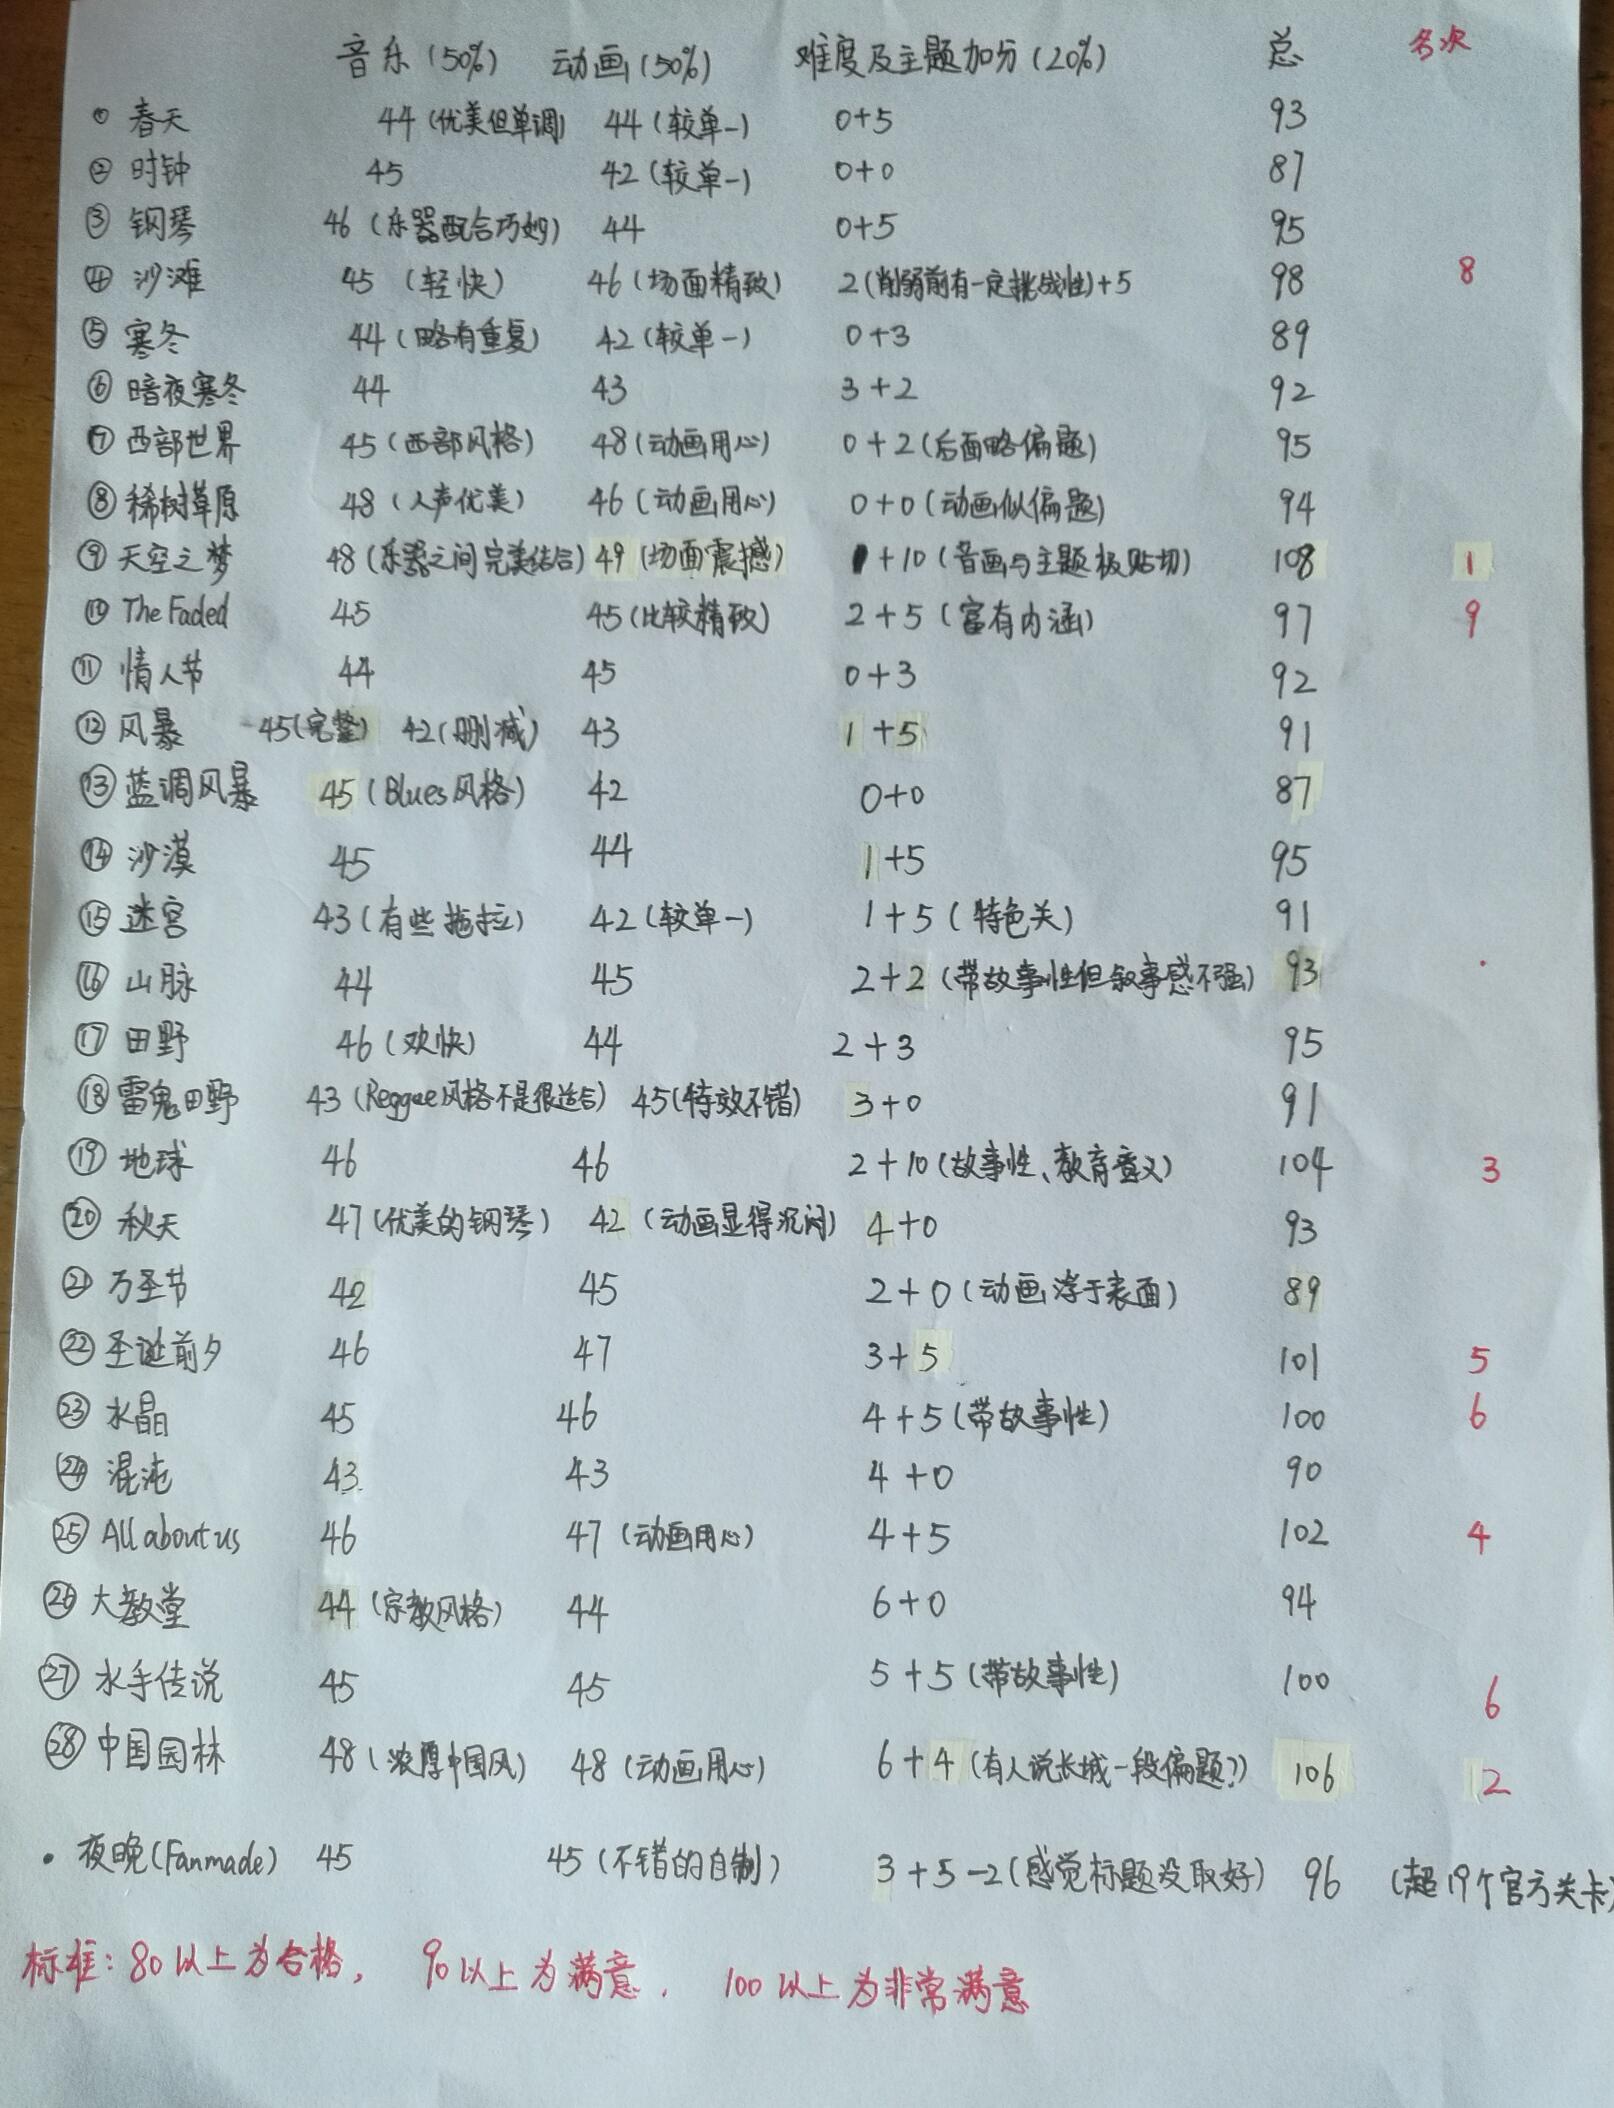 音乐(50%) 动画(50%) 难度及主题加分(20%) 总 名次
① 春天 44(优美但单调) 44(较单一) 0+5 93
② 时钟 45 42(较单一) 0+0 87
③ 钢琴 46(乐器配合巧妙) 44 0+5 95
④ 沙滩 45(轻快) 46(场面精致) 2(削弱前有一定挑战性)+5 98 8
⑤ 寒冬 44(略有重复) 42(较单一) 0+3 89
⑥ 暗夜寒冬 44 43 3+2 92
⑦ 西部世界 45(西部风格) 48(动画用心) 0+2(后面略偏题) 95
⑧ 稀树草原 48(人声优美) 46(动画用心) 0+0(动画似偏题) 94
⑨ 天空之梦 48(乐器之间完美结合) 49(场面震撼) 1+10(音画与主题极贴切) 108 1
⑩ The Faded 45 45(比较精致) 2+5(富有内涵) 97 9
⑪ 情人节 44 45 0+3 92
⑫ 风暴 45(完整) 42(删减) 43 1+5 91
⑬ 蓝调风暴 45(Blues风格) 42 0+0 87
⑭ 沙漠 45 44 1+5 95
⑮ 迷宫 43(有些拖拉) 42(较单一) 1+5(特色关) 91
⑯ 山脉 44 45 2+2(带故事性但叙事感不强) 93
⑰ 田野 46(欢快) 44 2+3 95
⑱ 雷鬼田野 43(Reggae风格不是很适合) 45(特效不错) 3+0 91
⑲ 地球 46 46 2+10(故事性、教育意义) 104 3
⑳ 秋天 47(优美的钢琴) 42(动画显得沉闷) 4+0 93
㉑ 万圣节 42 45 2+0(动画浮于表面) 89
㉒ 圣诞前夕 46 47 3+5 101 5
㉓ 水晶 45 46 4+5(带故事性) 100 6
㉔ 混沌 43 43 4+0 90
㉕ All about us 46 47(动画用心) 4+5 102 4
㉖ 大教堂 44(宗教风格) 44 6+0 94
㉗ 水手传说 45 45 5+5(带故事性) 100 6
㉘ 中国园林 48(浓厚中国风) 48(动画用心) 6+4(有人说长城一段偏题?) 106 2
· 夜晚(Fanmade) 45 45(不错的自制) 3+5-2(感觉标题没取好) 96 (超19个官方关卡)
标准:80以上为合格, 90以上为满意, 100以上为非常满意